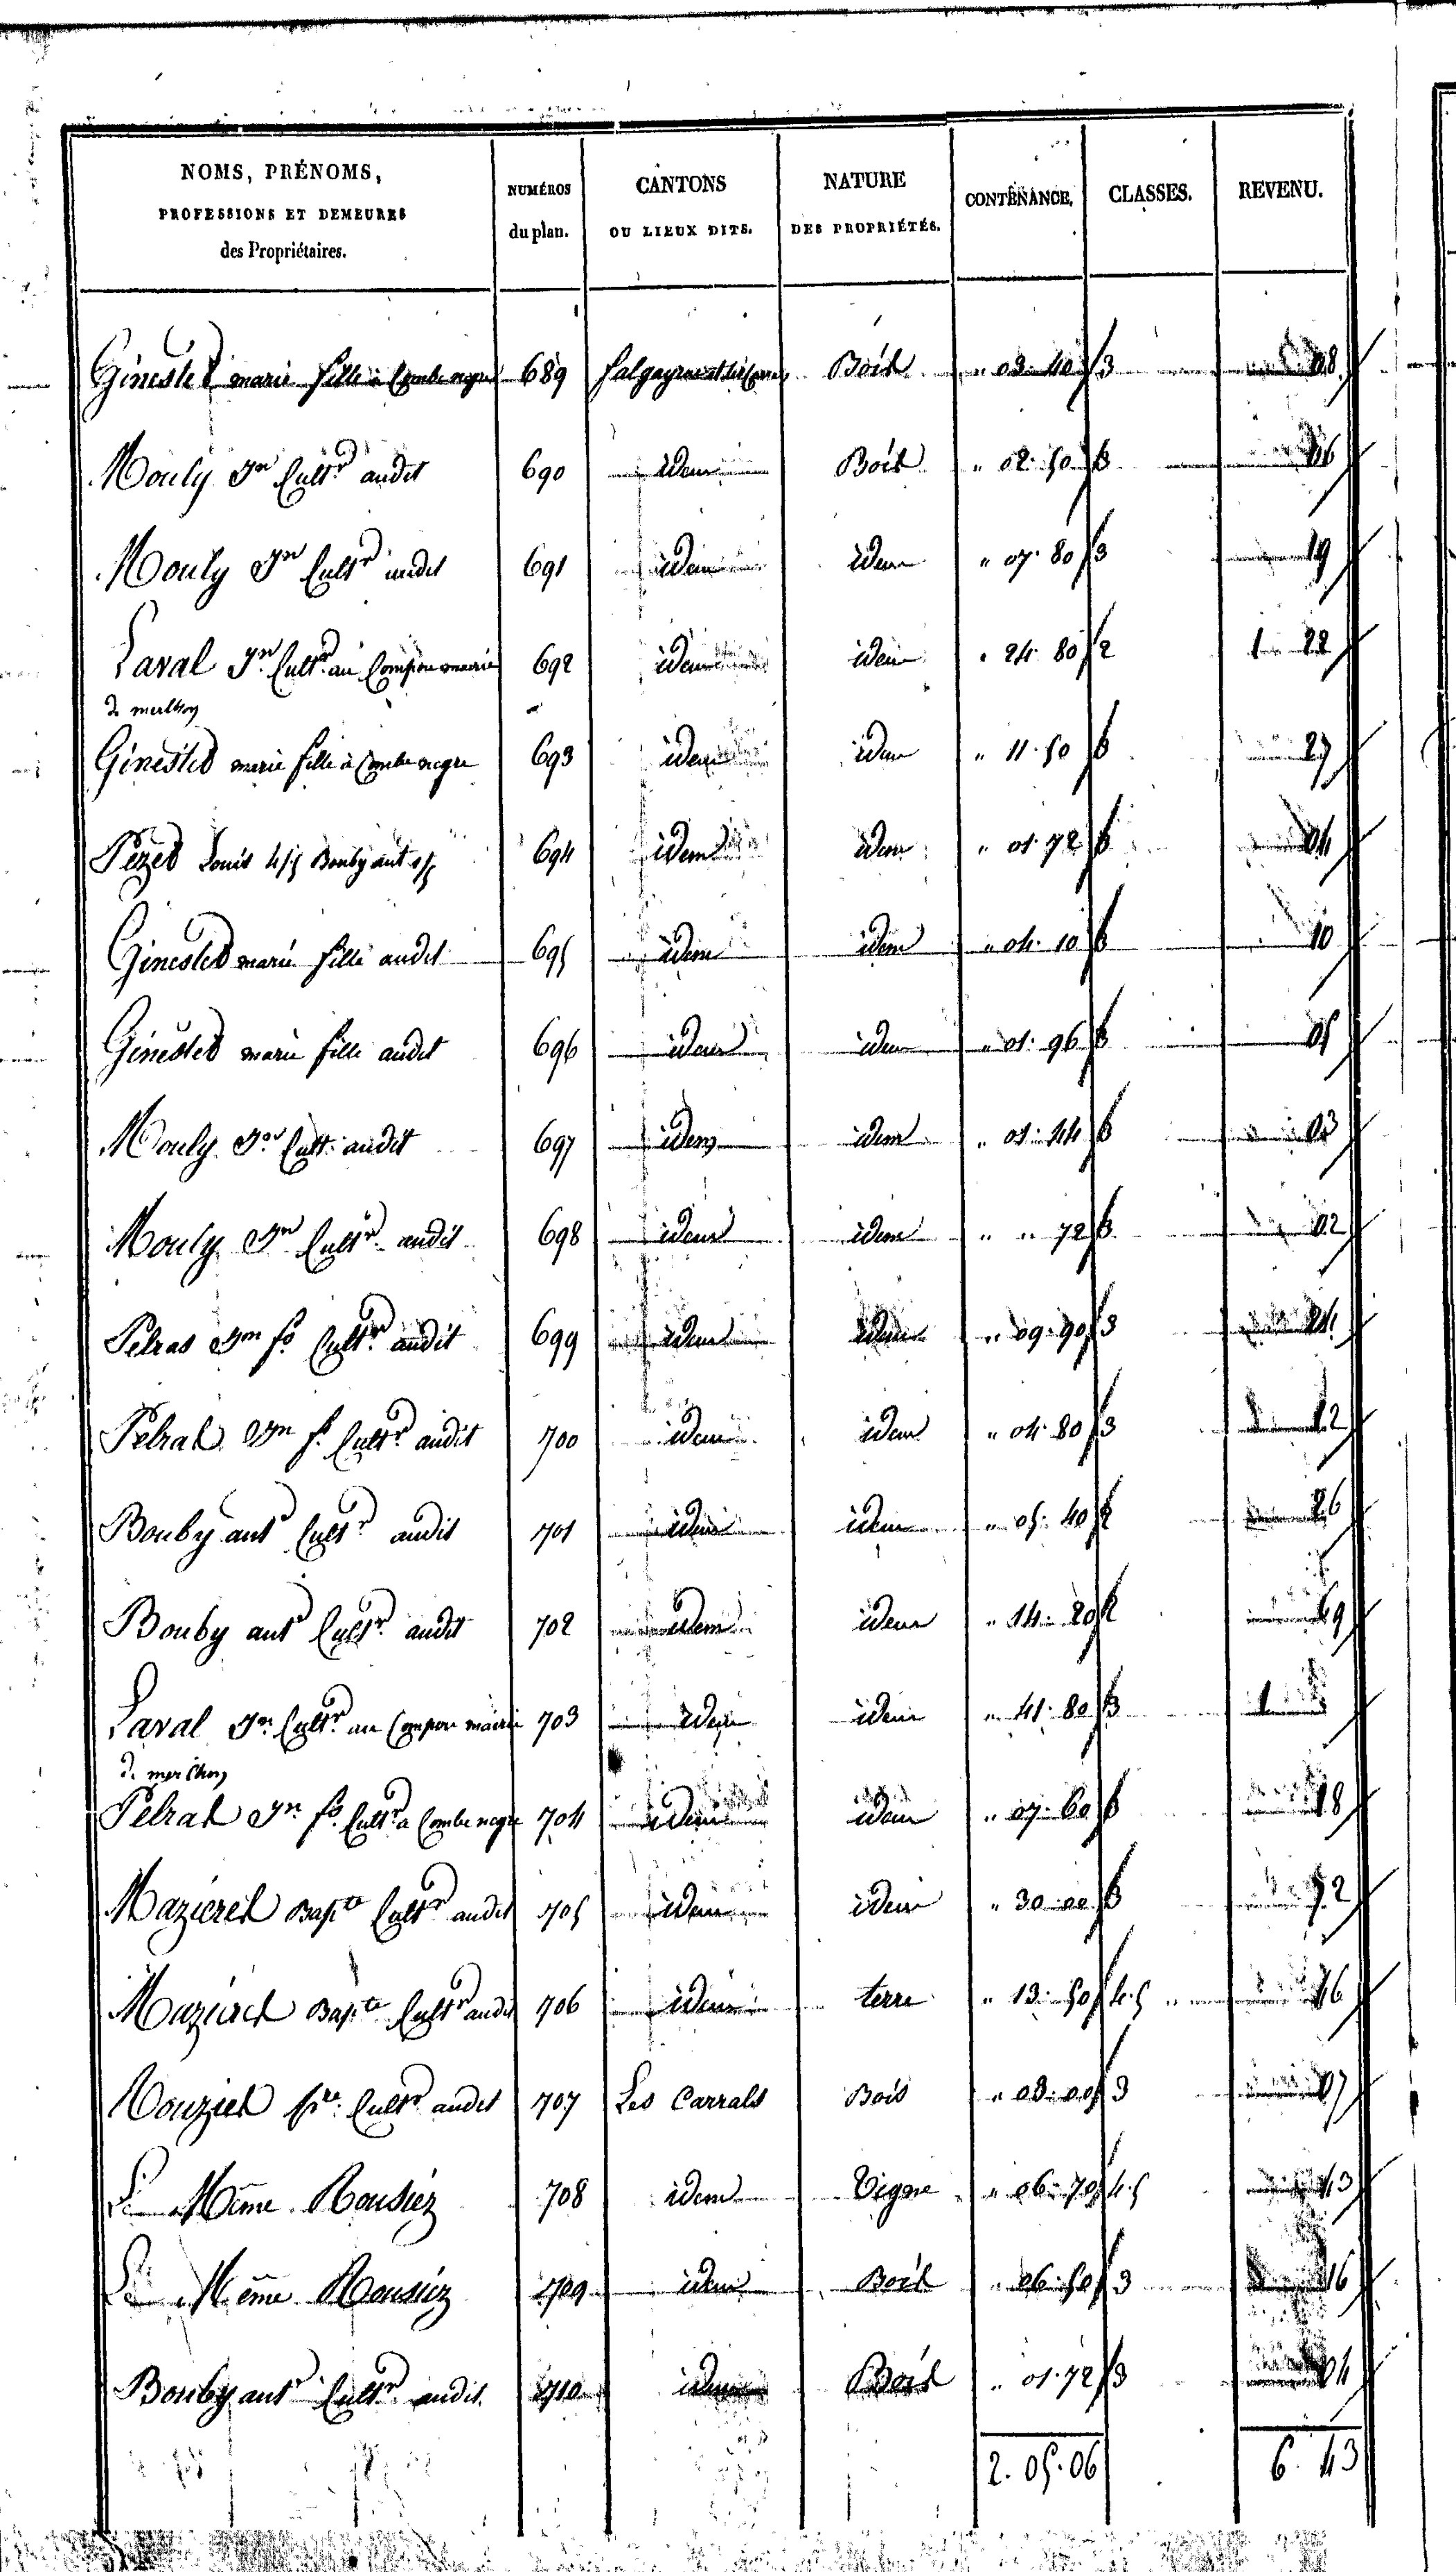 NOMS, PRÉNOMS, PROFESSIONS ET DEMEURES des Propriétaires. NUMÉROS du plan. CANTONS OU LIEUX DITS. NATURE DES PROPRIÉTÉS. CONTENANCE. CLASSES. REVENU.
Ginested marie fille à Combe negre 689 Bois " 03 40 3 08
Mouly Jn Cultr audit 690 idem Bois " 02 50 3 06
Mouly Jn Cultr audit 691 idem idem " 07 80 3 19
Laval Jn Cultr au mairie 692 idem idem " 24 80 2 1 22
Ginested marie fille à Combe negre 693 idem idem " 11 50 3 27
Pezet Louis 4/5 Bouby ant 1/5 694 idem idem " 01 72 3 04
Ginested marie fille audit 695 idem idem " 04 10 3 10
Ginested marie fille audit 696 idem idem " 01 96 3 05
Mouly Jn Cultr audit 697 idem idem " 01 44 3 03
Mouly Jn Cultr audit 698 idem idem " " 72 3 02
Pelras Jn fs Cultr audit 699 idem idem " 09 90 3 24
Pelras Jn fs Cultr audit 700 idem idem " 04 80 3 12
Bouby ant Cultr audit 701 idem idem " 05 40 2 26
Bouby ant Cultr audit 702 idem idem " 14 20 2 69
Laval Jn Cultr au mairie 703 idem idem " 41 80 3 1
Pelras Jn fs Cultr à Combe negre 704 idem idem " 07 60 3 18
Mazieres Bapte Cultr audit 705 idem idem " 30 00 3 72
Mazieres Bapte Cultr audit 706 idem terre " 13 50 4.5
Cultr audit 707 Les Carrals Bois " 03 00 3 07
Le Même 708 idem Vigne " 06 70 4.5
Le Même 709 idem Bois " 06 50 3 16
Bouby ant Cultr audit 710 idem Bois " 01 72 3 04
2. 05. 06 6. 43